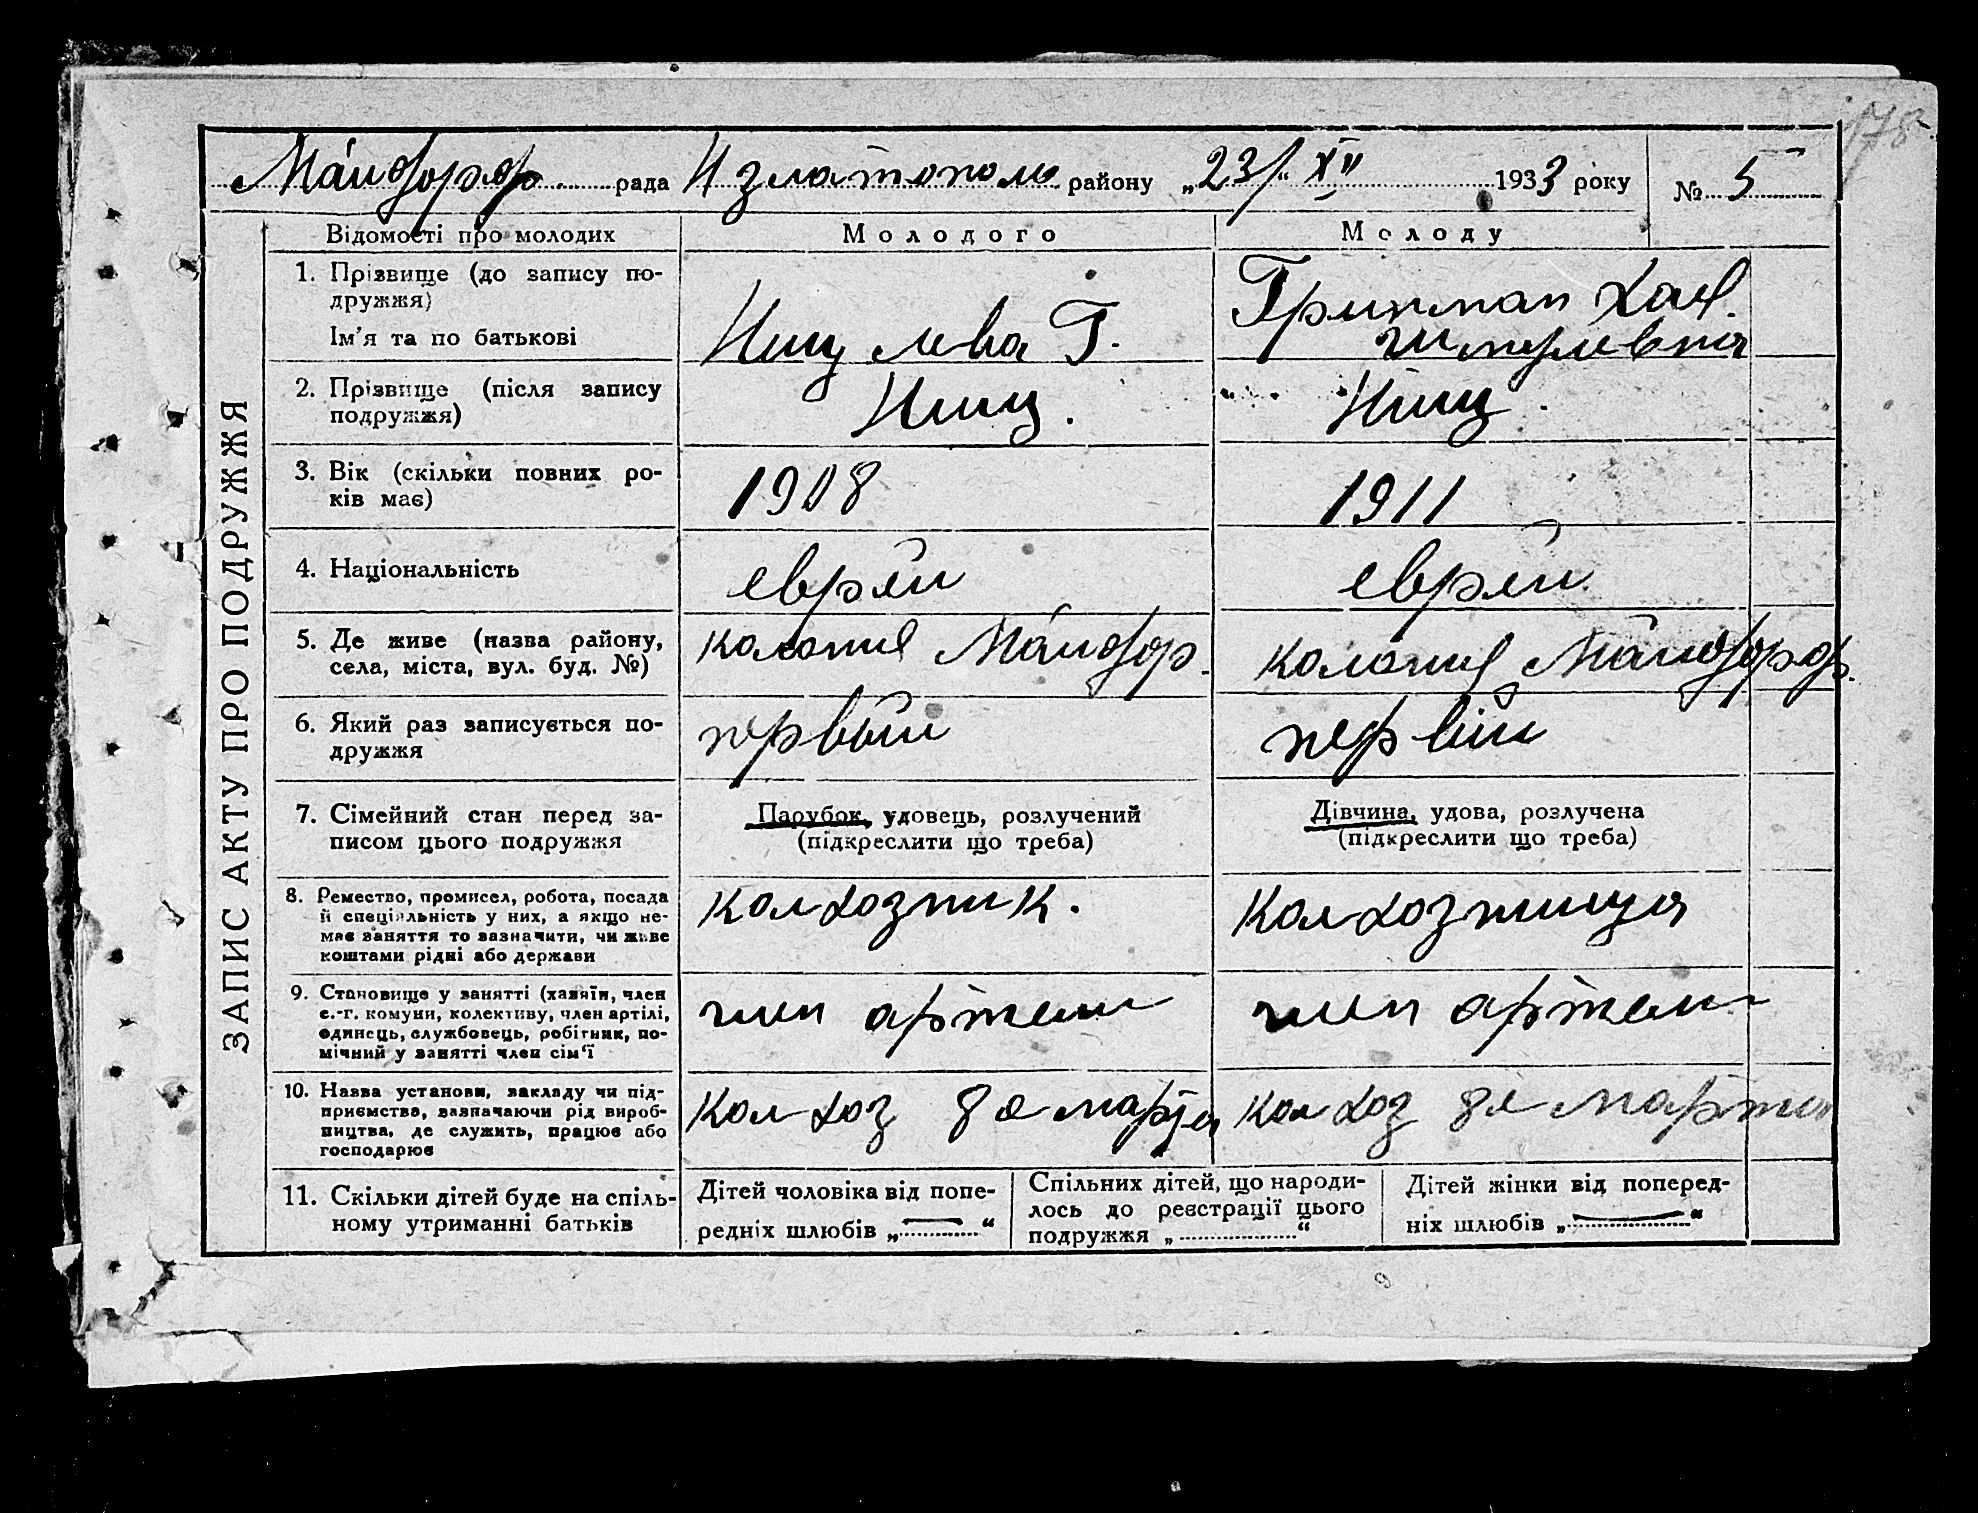 178
Майндорф рада Н златополь району „23/“ XII 1933 року № 5
ЗАПИС АКТУ ПРО ПОДРУЖЖЯ
Відомості про молодих Молодого Молоду
1. Прізвище (до запису по-
дружжя)
Ім'я та по батькові
Ниц лева Г.
Гритман Хая
Шмулевна
2. Прізвище (після запису
подружжя)
Ниц.
Ниц.
3. Вік (скільки повних ро-
ків має)
1908
1911
4. Національність
еврей
еврей
5. Де живе (назва району,
села, міста, вул. буд. №)
колония Майндор.
колония Майндорф.
6. Який раз записується по-
дружжя
первый
первый
7. Сімейний стан перед за-
писом цього подружжя
Парубок, удовець, розлучений
(підкреслити що треба)
Дівчина, удова, розлучена
(підкреслити що треба)
8. Ремество, промисел, робота, посада
й спеціяльність у них, а якщо не-
має заняття то зазначити, чи живе
коштами рідні або держави
Колхозник.
Колхозница
9. Становище у занятті (хазяїн, член
с.-г. комуни, колективу, член артілі,
одинець, службовець, робітник, по-
мічний у занятті член сім'ї
член артели
член артели
10. Назва установи, закладу чи під-
приємства, зазначаючи рід вироб-
ництва, де служить, працює або
господарює
Колхоз 8е марта
Колхоз 8е марта
11. Скільки дітей буде на спіль-
ному утриманні батьків
Дітей чоловіка від попе-
редніх шлюбів „—“
Спільних дітей, що народи-
лось до реєстрації цього
подружжя „ “
Дітей жінки від поперед-
ніх шлюбів „—“